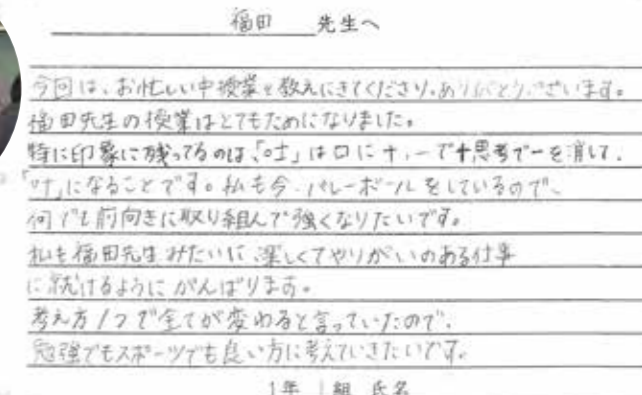 福田 先生へ
今回は、お忙しい中授業を教えにきてくださり、ありがとうございます。
福田先生の授業はとてもためになりました。
特に印象に残ってるのは、「吐」は口に十、一で十思考で一を消して、
「叶」になることです。私も今、バレーボールをしているので、
何でも前向きに取り組んで強くなりたいです。
私も福田先生みたいに、楽しくてやりがいのある仕事
に就けるようにがんばります。
考え方1つで全てが変わると言っていたので、
勉強でもスポーツでも良い方に考えていきたいです。
1年 1組 氏名